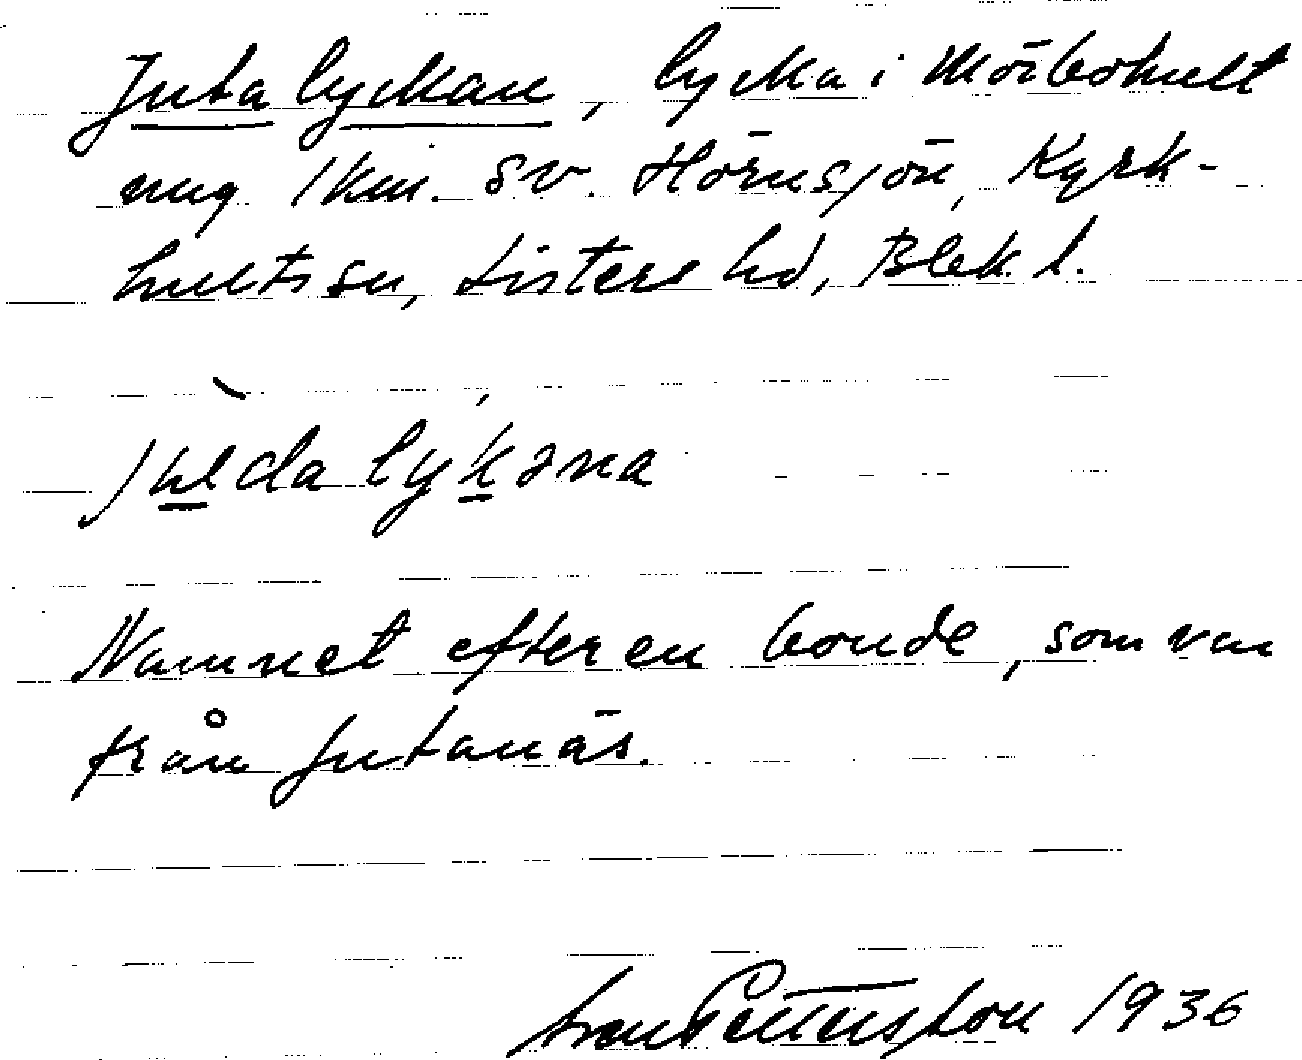 Jutalyckan, lycka i Mörbohult
ung 1 km. SV. Hörnsjön, Kyrk-
hults sn, Listers hd, Blek. l.
julda lykəna
Namnet efter en bonde, som var
från Jutanäs.
Pettersson 1936